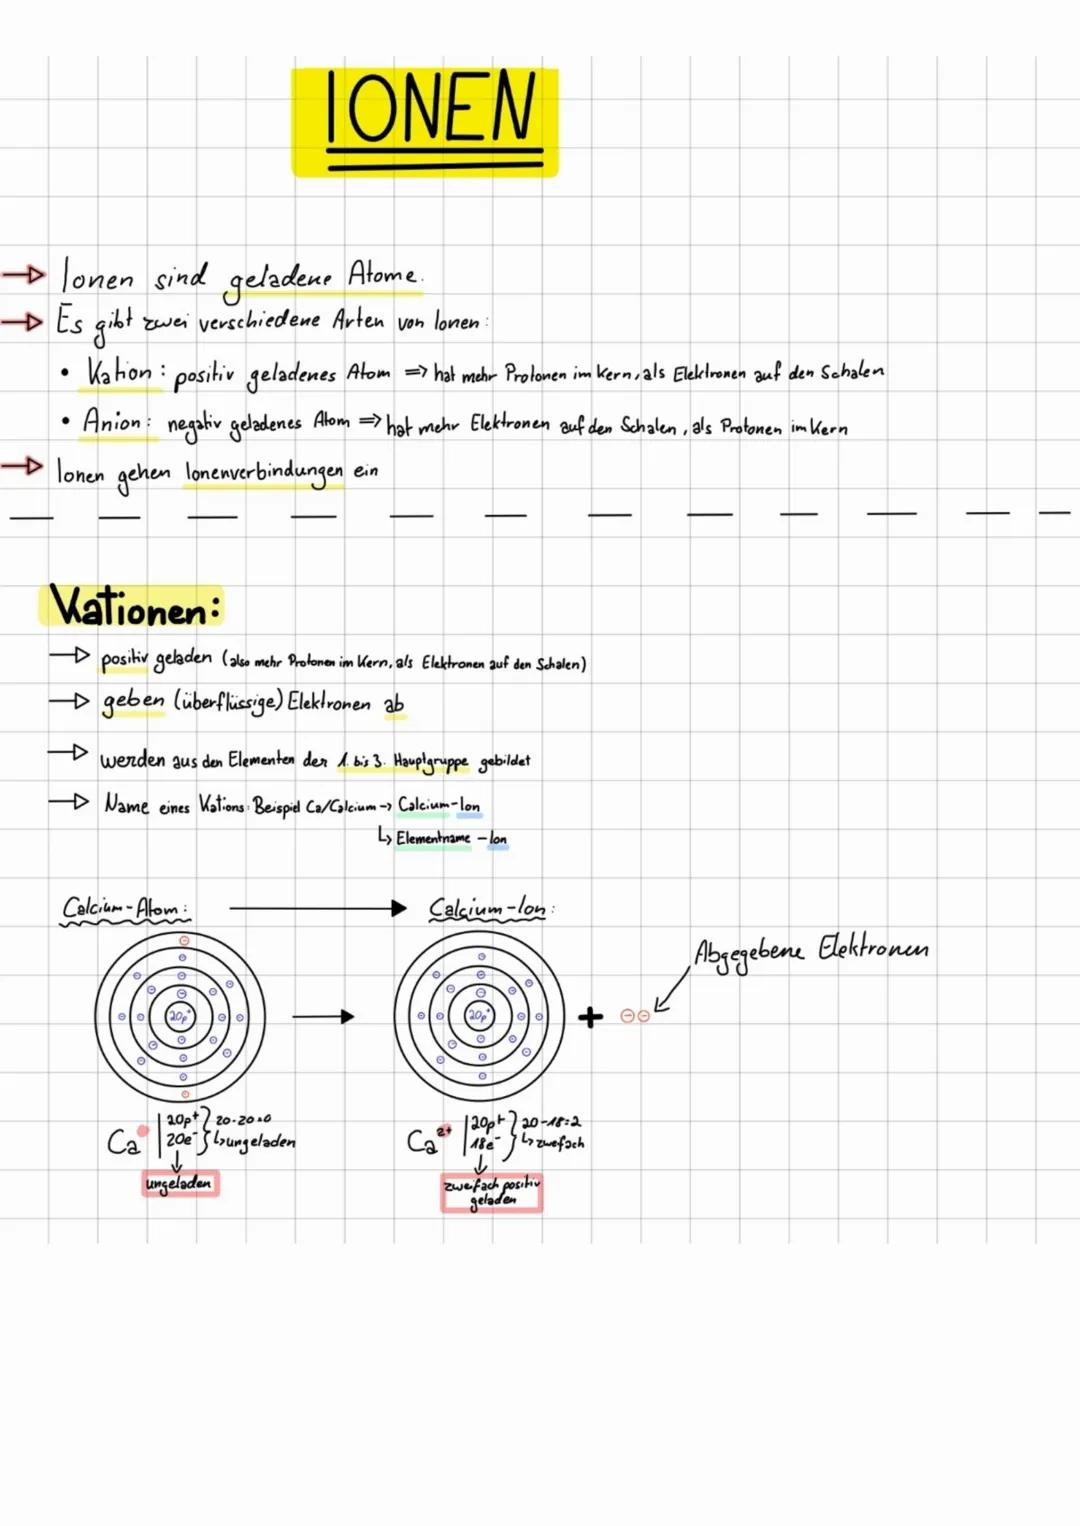 IONEN
Ionen sind geladene Atome.
Es gibt zwei verschiedene Arten von Ionen:
• Kation: positiv geladenes Atom => hat mehr Protonen im Kern, als Elektronen auf den Schalen
• Anion: negativ geladenes Atom => hat mehr Elektronen auf den Schalen, als Protonen im Kern
Ionen gehen Ionenverbindungen ein
Kationen:
positiv geladen (also mehr Protonen im Kern, als Elektronen auf den Schalen)
geben (überflüssige) Elektronen ab
werden aus den Elementen der 1. bis 3. Hauptgruppe gebildet
Name eines Kations: Beispiel Ca/Calcium -> Calcium-Ion
↳ Elementname -Ion
Calcium-Atom: Calcium-Ion:
Abgegebene Elektronen
20p⁺ 20p⁺ +
Ca | 20p⁺ } 20-20=0 Ca²⁺ | 20p⁺ } 20-18=2
20e⁻ ↳ ungeladen 18e⁻ ↳ zweifach
ungeladen zweifach positiv
geladen